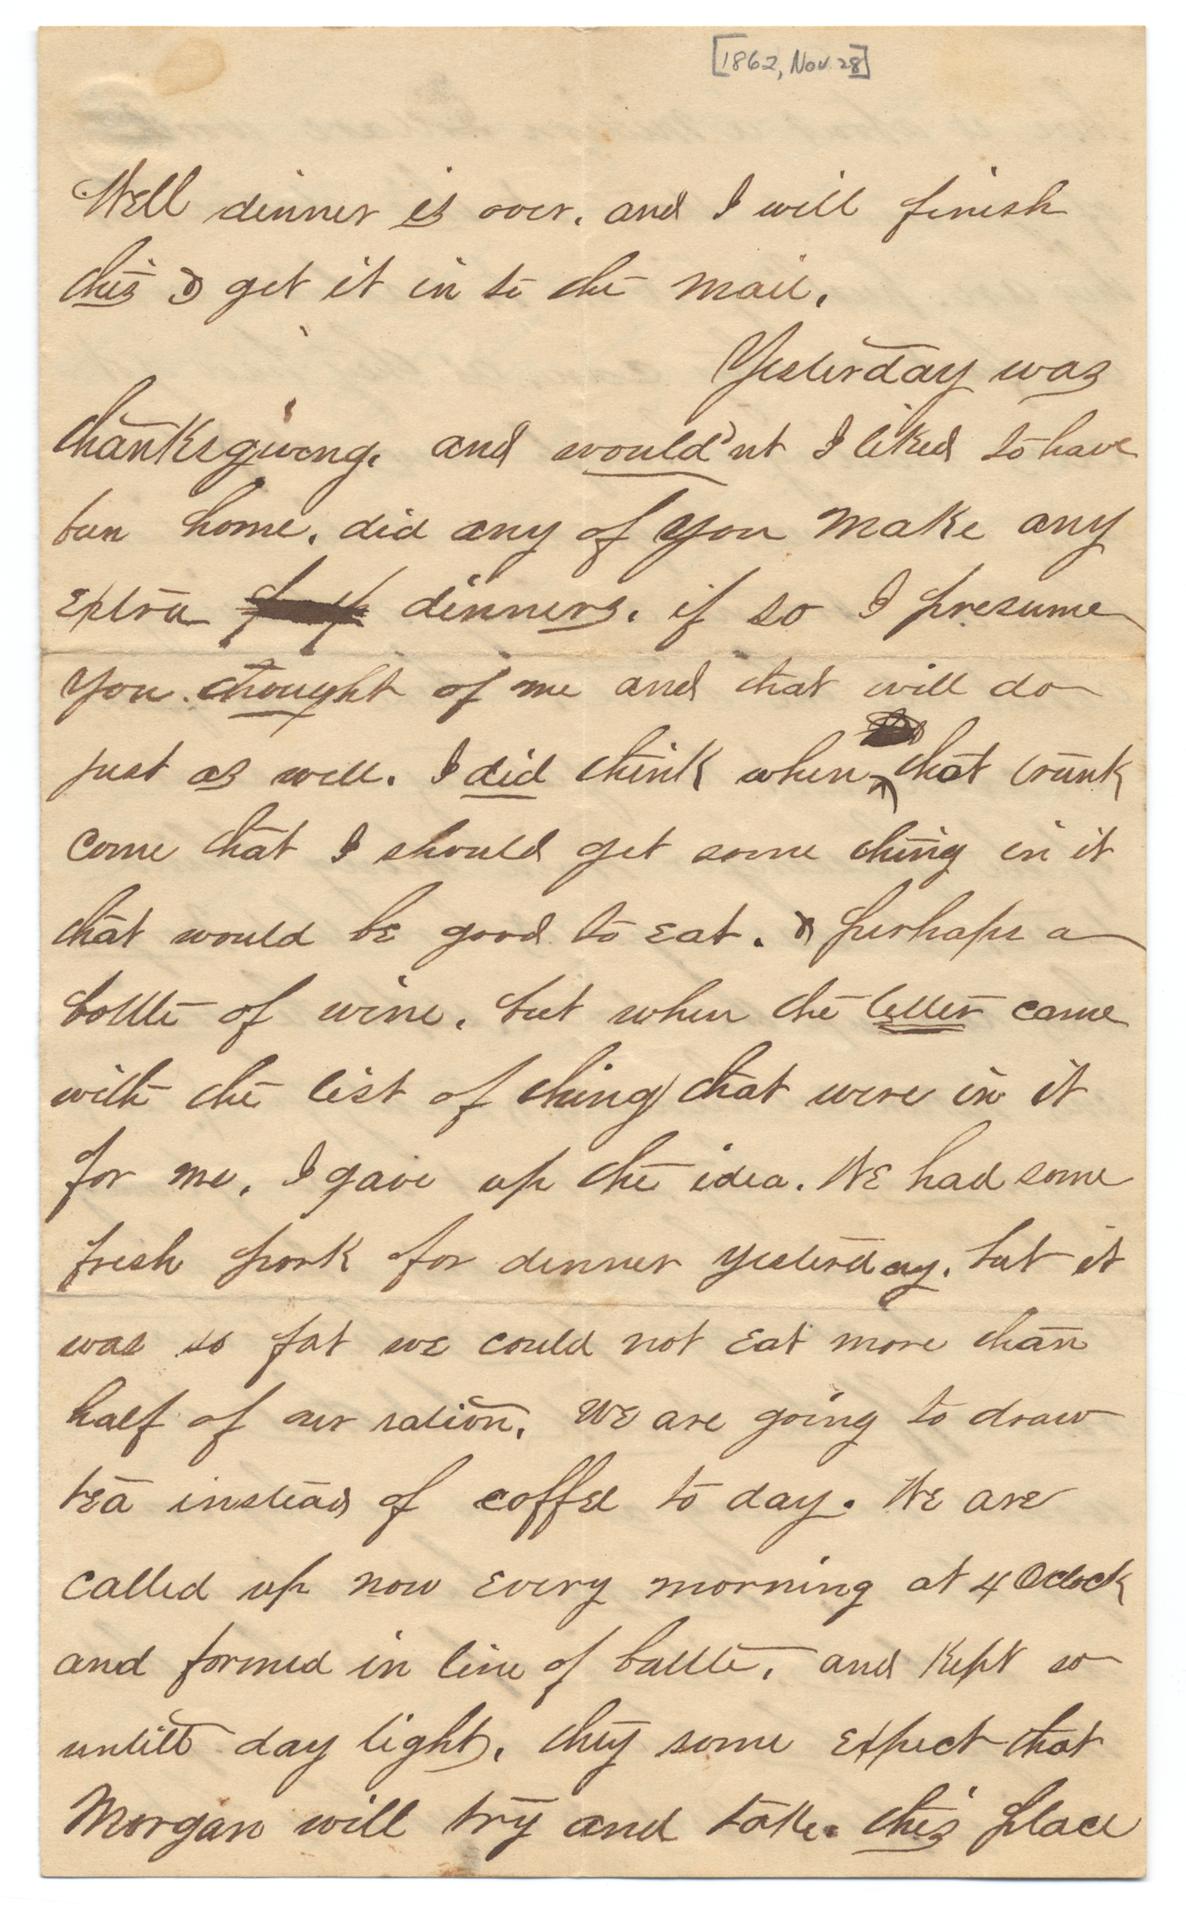 [1862, Nov. 28]
Well dinner is over. and I will finish
this & get it in to the mail.
Yesterday was
thanksgiving. and would'nt I liked to have
bun home. did any of you make any
extra dinners. if so I presume
you thought of me and that will do
just as well. I did think when that trunk
come that I should get some thing in it
that would be good to eat. & perhaps a
bottle of wine. but when the letter came
with the list of things that were in it
for me. I gave up the idea. We had some
fresh pork for dinner yesterday. but it
was so fat we could not eat more than
half of our ration. We are going to draw
tea instead of coffee to day. We are
called up now every morning at 4 Oclock
and formed in line of battle. and kept so
untill day light. they some expect that
Morgan will try and take. this place